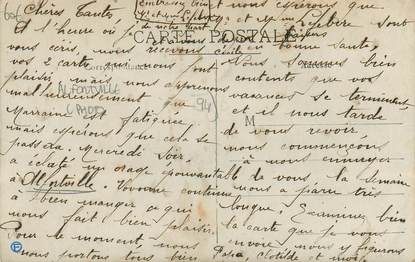 Chères Tantes
A l'heure où je
vous écris, nous recevons
vos 2 carte qui nous font
plaisir, mais nous apprenons
malheureusement que
Marraine est fatiguée,
mais espérons que cela se
passera. Mercredi soir
a éclaté un orage épouvantable
à Alfortville. Yvonne continue
à bien manger ce qui
nous fait bien plaisir.
Pour le moment nous
nous portons tous bien
et nous espérons que
Mr et Mme Lefebvre sont
en bonne santé.
Nous sommes bien
contents que vos
vacances se terminent
et il nous tarde
de vous revoir,
nous commençons
à nous ennuyer
de vous la semaine
nous a paru très
longue. Examinez bien
la carte que je vous
envoie nous y figurons
Papa, Clotilde et moi.
embrassez bien
de notre part
Cécile
CARTE POSTALE
ALFORTVILLE
94
M